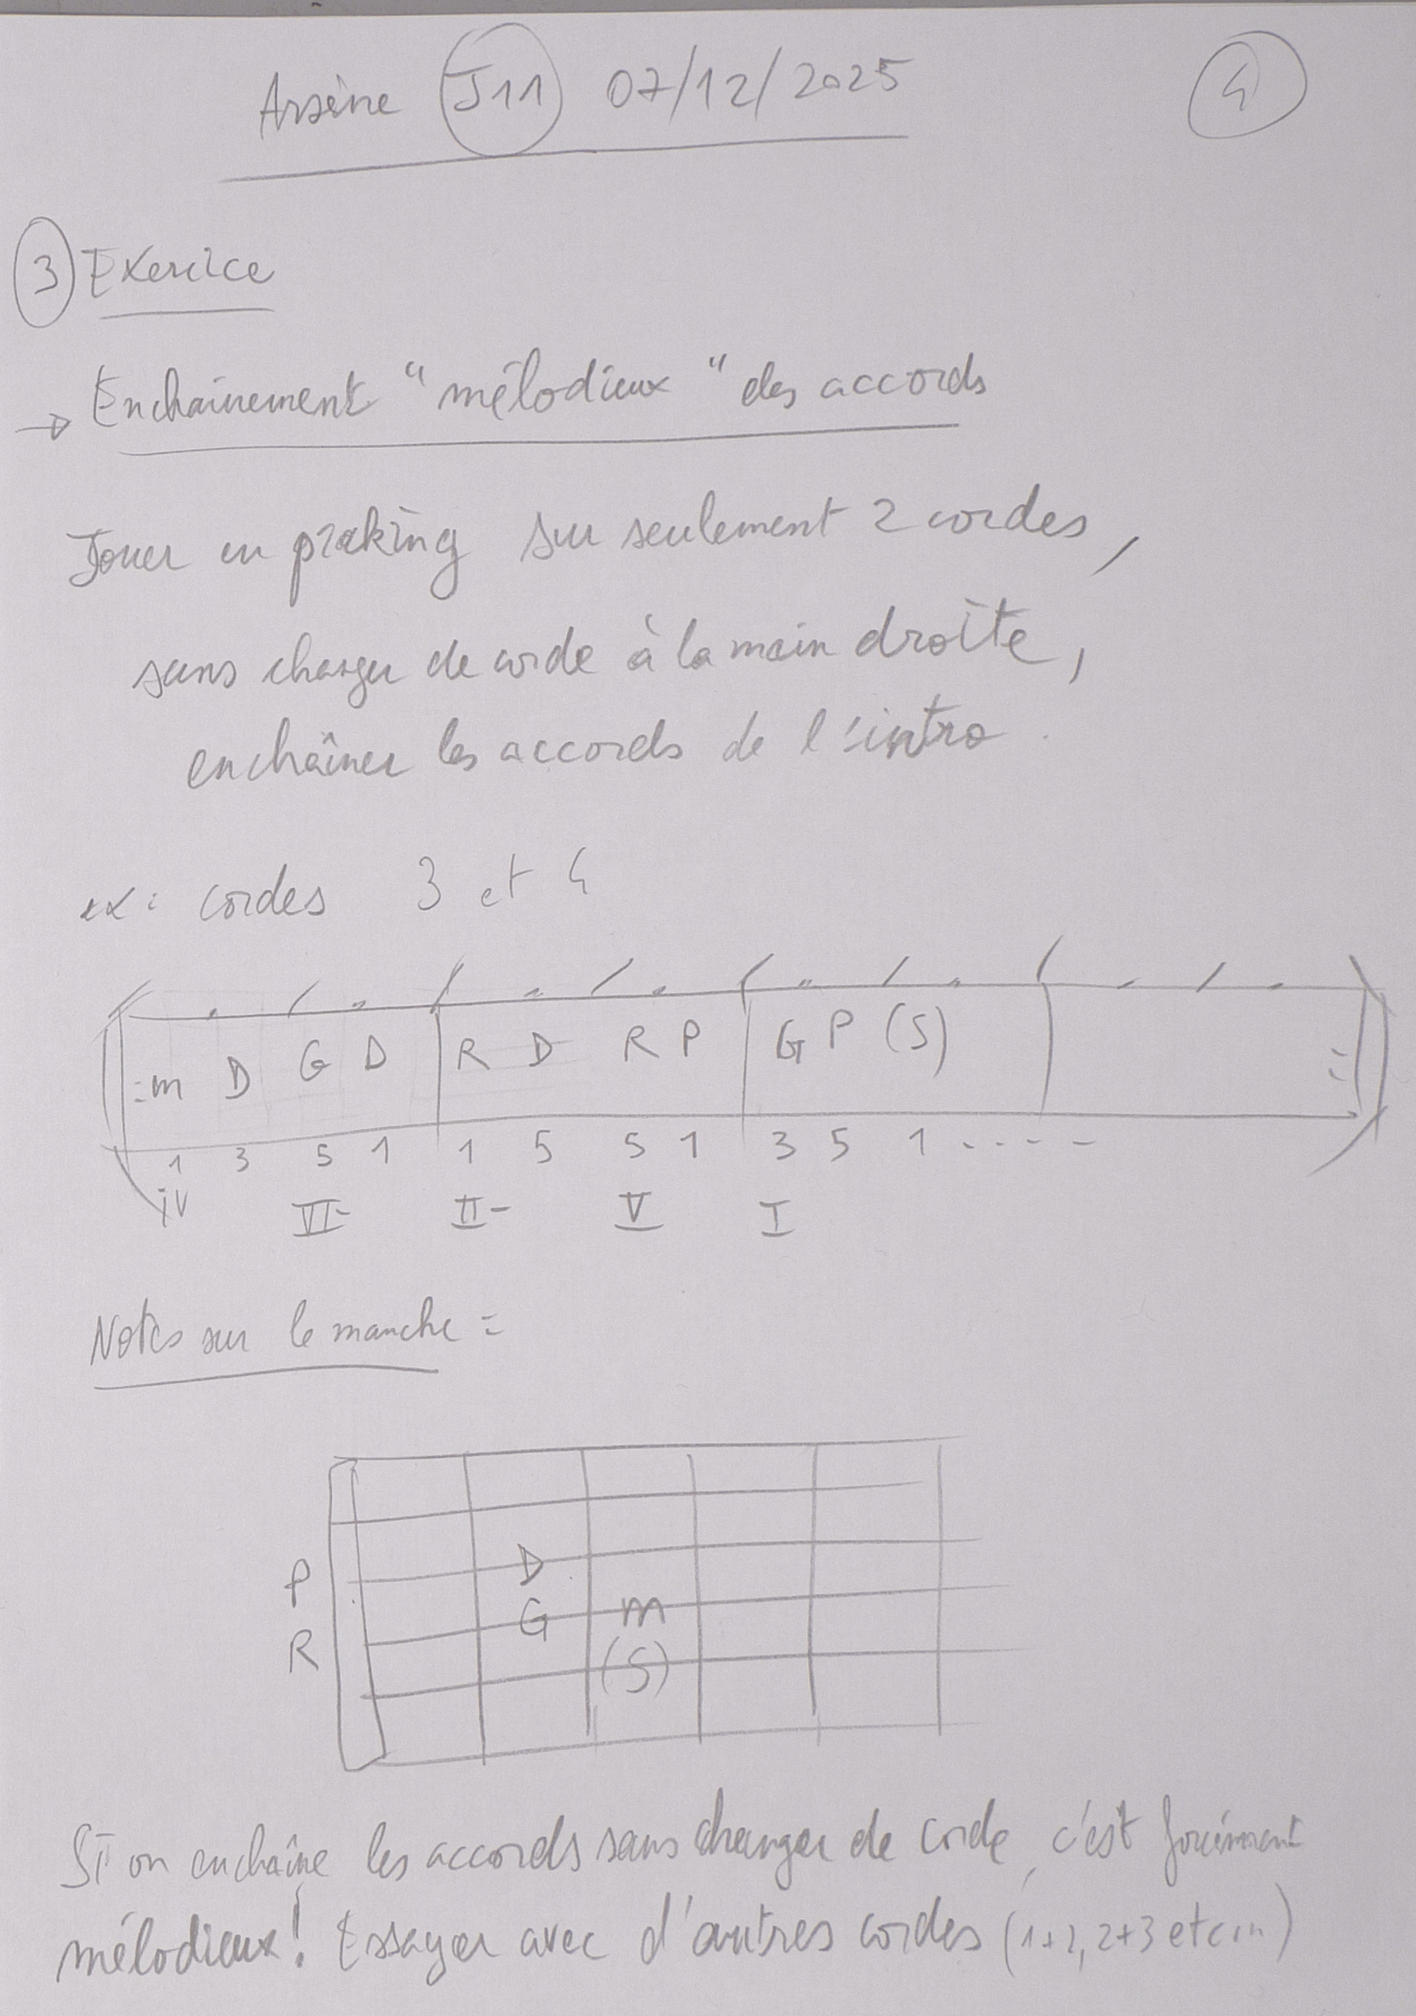 Arsène J11 07/12/2025 4
3 Exercice
→ Enchaînement "mélodieux" des accords
Jouer en picking sur seulement 2 cordes,
sans changer de corde à la main droite,
enchaîner les accords de l'intro.
ex: cordes 3 et 4
m D G D R D R P G P (S)
1 3 5 1 1 5 5 1 3 5 1 ----
IV VI- II- V I
Notes sur le manche =
P D
G m
R (S)
Si on enchaîne les accords sans changer de corde, c'est forcément
mélodieux! Essayer avec d'autres cordes (1+2, 2+3 etc...)